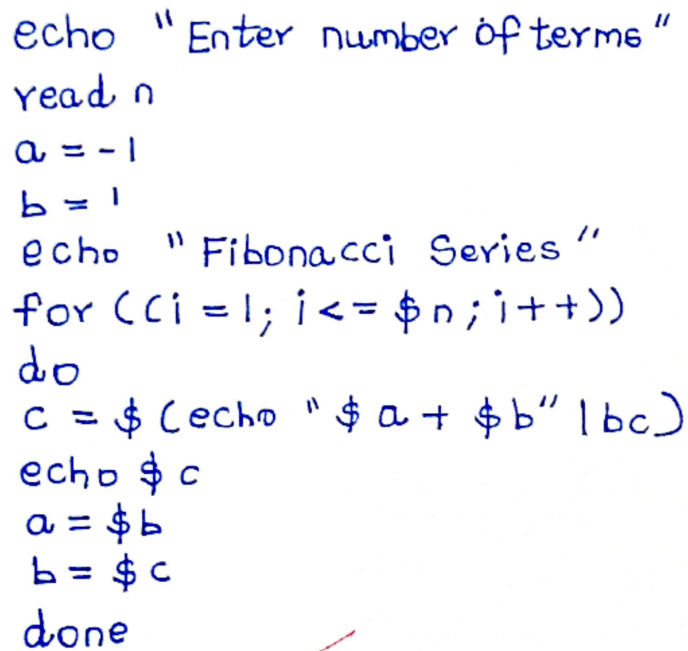 echo "Enter number of terms"
read n
a = -1
b = 1
echo "Fibonacci Series"
for ((i = 1; i <= $n; i++))
do
c = $ (echo "$a + $b" | bc)
echo $c
a = $b
b = $c
done